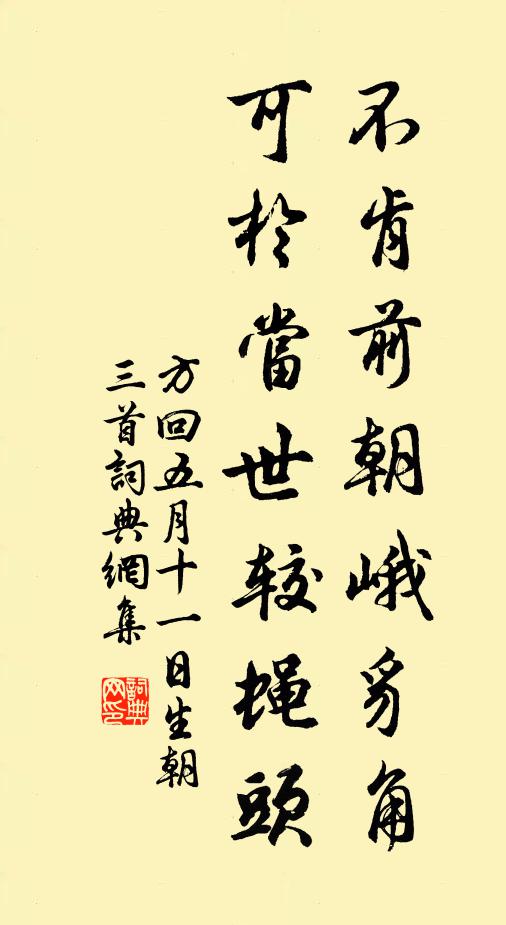 不肯前朝峨豸角
可於當世较蝇頭
方回五月十一日生朝
三首詞典網集
詞典网印